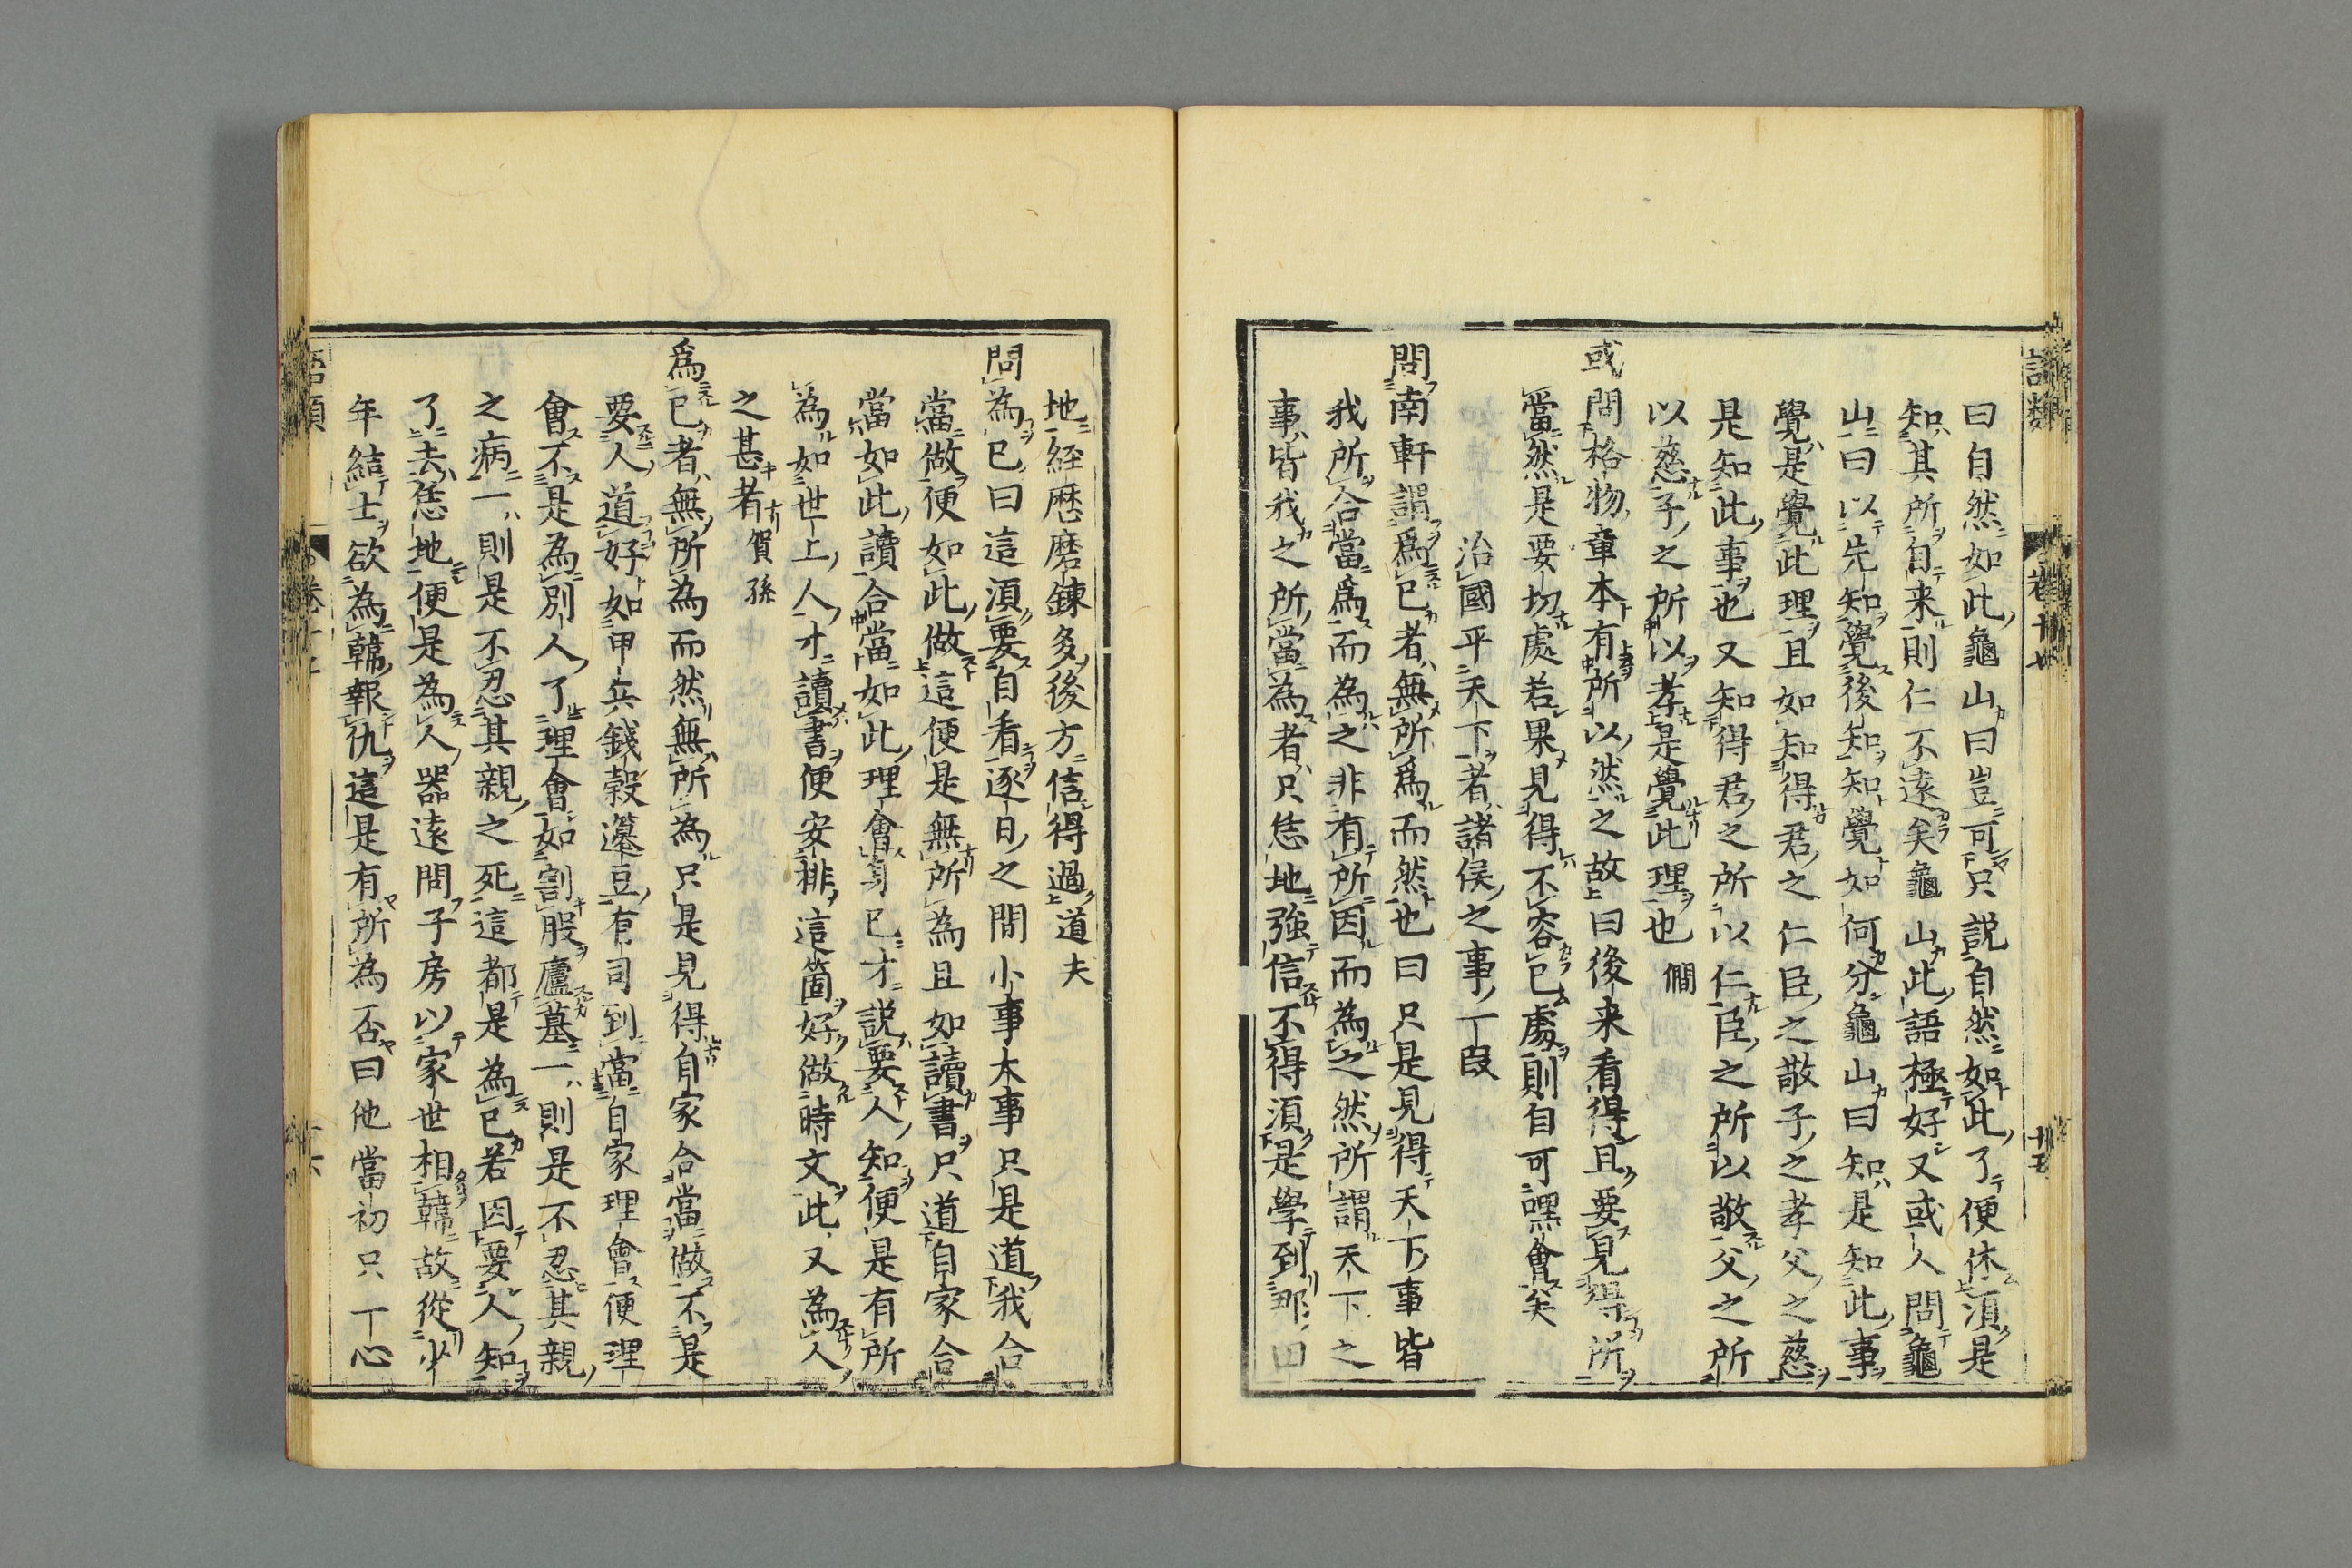 語類
卷十七
十五
曰自然如此龜山曰豈可只説自然如此了便休須是
知其所自来則仁不遠矣龜山此語極好又或人問龜
山曰以先知覺後知知覺如何分龜山曰知是知此事
覺是覺此理且如知得君之仁臣之敬子之孝父之慈
是知此事也又知得君之所以仁臣之所以敬父之所
以慈子之所以孝是覺此理也 僩
或問格物章本有所以然之故曰後来看得且要見得所
當然是要切處若果見得不容已處則自可嘿會矣
治國平天下者諸侯之事一段
問南軒謂爲己者無所爲而然也曰只是見得天下事皆
我所合當爲而為之非有所因而為之然所謂天下之
事皆我之所當為者只恁地強信不得須是學到那田
地經歴磨鍊多後方信得過 道夫
問為己曰這須要自看逐日之間小事大事只是道我合
當做便如此做這便是無所為且如讀書只道自家合
當如此讀合當如此理會身己才説要人知便是有所
為如世上人才讀書便安排這箇好做時文此又為人
之甚者 賀孫
爲己者無所為而然無所為只是見得自家合當做不是
要人道好如甲兵錢穀籩豆有司到當自家理會便理
會不是為別人了理會如割股廬墓一則是不忍其親
之病一則是不忍其親之死這都是為己若因要人知
了去恁地便是為人器遠問子房以家世相韓故從少
年結士欲為韓報仇這是有所為否曰他當初只一心
語類